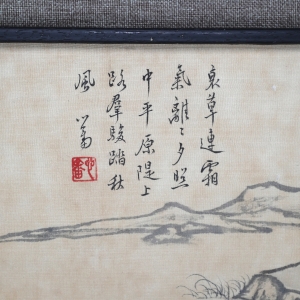 衰草連霜
氣離々夕照
中平原隄上
路羣駿踏秋
風 心畬